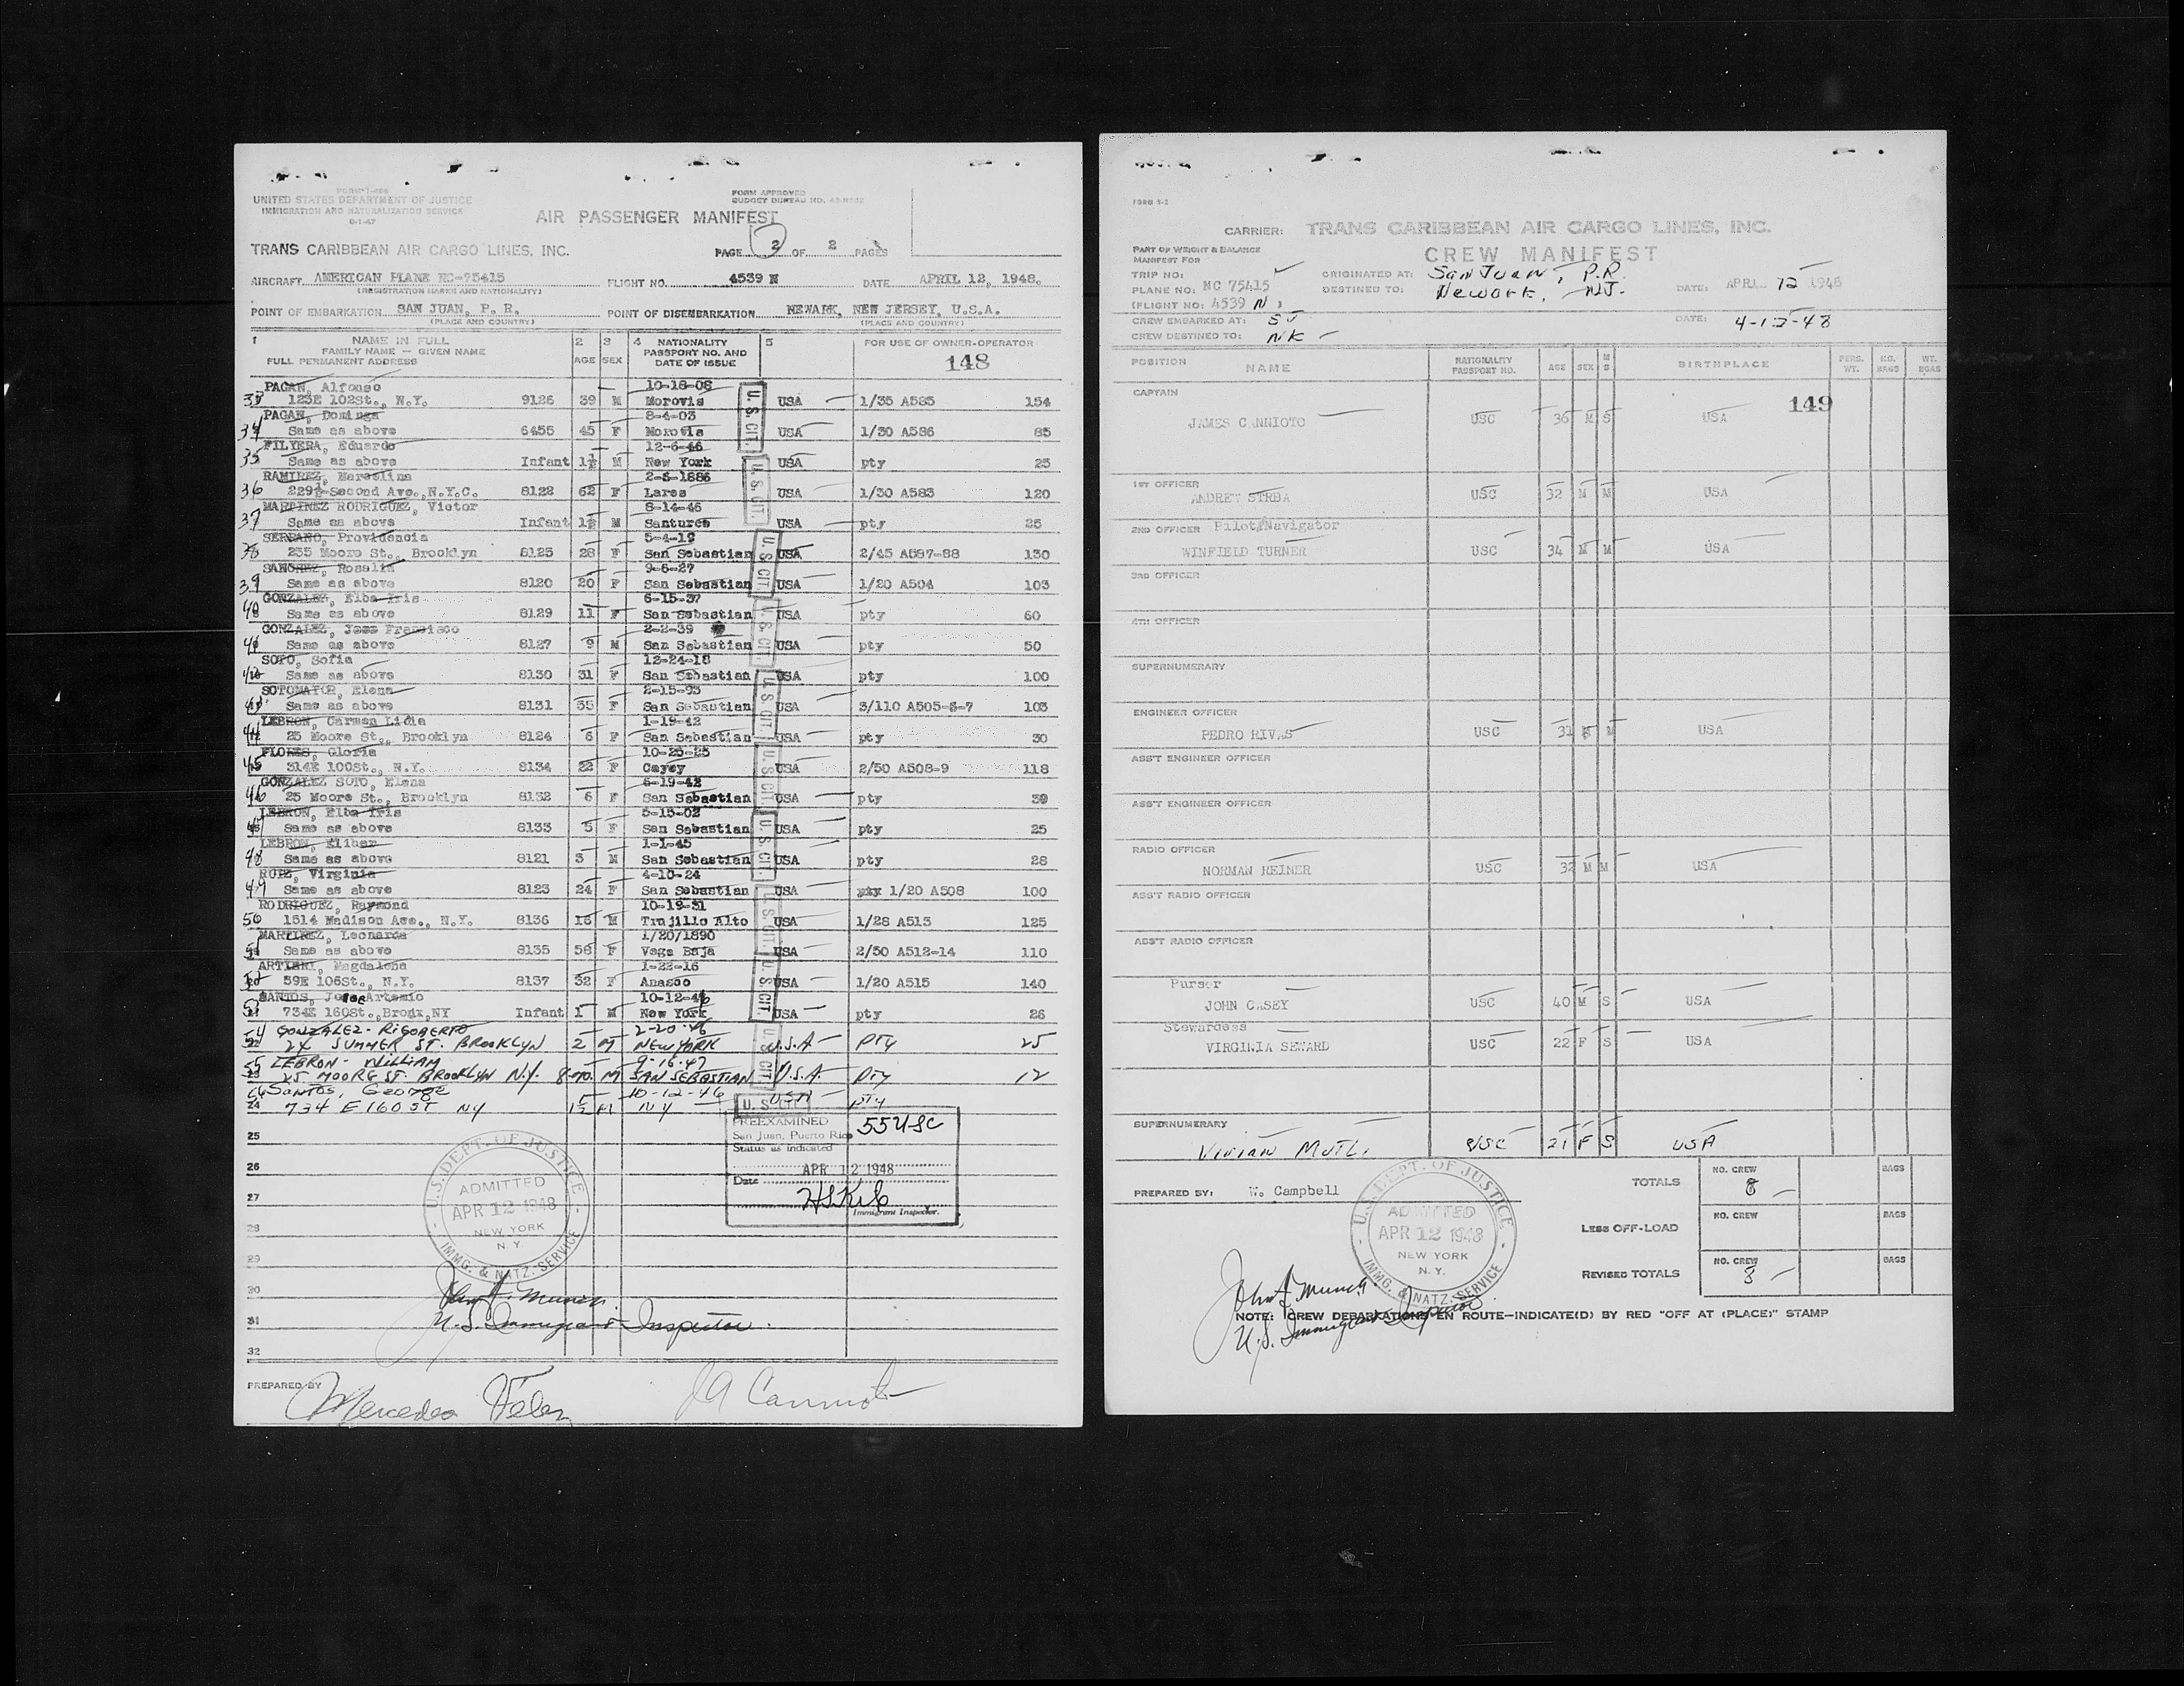 FORM I-466
UNITED STATES DEPARTMENT OF JUSTICE
IMMIGRATION AND NATURALIZATION SERVICE
6-1-47
FORM APPROVED
BUDGET BUREAU NO.
AIR PASSENGER MANIFEST
TRANS CARIBBEAN AIR CARGO LINES, INC.
PAGE 2 OF 2 PAGES
AIRCRAFT AMERICAN PLANE NC-75415 FLIGHT NO. 4539 N DATE APRIL 12, 1948.
(REGISTRATION MARKS AND NATIONALITY)
POINT OF EMBARKATION SAN JUAN, P. R. POINT OF DISEMBARKATION NEWARK, NEW JERSEY, U.S.A.
(PLACE AND COUNTRY) (PLACE AND COUNTRY)
1 NAME IN FULL 2 3 4 NATIONALITY 5 FOR USE OF OWNER-OPERATOR
FAMILY NAME — GIVEN NAME AGE SEX PASSPORT NO. AND
FULL PERMANENT ADDRESS DATE OF ISSUE 148
PAGAN, Alfonso 10-18-08
33 123E 102St., N.Y. 9126 39 M Morovis USA 1/35 A585 154
PAGAN, Dominga 8-4-03
34 Same as above 6455 45 F Morovis USA 1/30 A586 85
FILYERA, Eduardo 12-6-46
35 Same as above Infant 1½ M New York USA pty 25
RAMIREZ, Marcelina 2-5-1886
36 229½ Second Ave., N.Y.C. 8122 62 F Lares USA 1/30 A583 120
MARTINEZ RODRIGUEZ, Victor 8-14-46
37 Same as above Infant 1½ M Santurce USA pty 25
SERRANO, Providencia 5-4-19
38 235 Moore St., Brooklyn 8125 28 F San Sebastian USA 2/45 A587-88 130
SANCHEZ, Rosalia 9-6-27
39 Same as above 8120 20 F San Sebastian USA 1/20 A504 103
GONZALEZ, Elba Iris 6-15-37
40 Same as above 8129 11 F San Sebastian USA pty 60
GONZALEZ, Jose Francisco 2-2-39
41 Same as above 8127 9 M San Sebastian USA pty 50
SOTO, Sofia 12-24-18
42 Same as above 8130 31 F San Sebastian USA pty 100
SOTOMAYOR, Elena 2-15-93
43 Same as above 8131 55 F San Sebastian USA 3/110 A505-6-7 103
LEBRON, Carmen Lidia 1-19-42
44 25 Moore St., Brooklyn 8124 6 F San Sebastian USA pty 30
FLORES, Gloria 10-25-25
45 314E 100St., N.Y. 8134 22 F Cayey USA 2/50 A508-9 118
GONZALEZ SOTO, Elena 5-19-42
46 25 Moore St., Brooklyn 8132 6 F San Sebastian USA pty 39
LEBRON, Elba Iris 5-15-02
Same as above 8133 5 F San Sebastian USA pty 25
LEBRON, Eliber 1-1-45
48 Same as above 8121 3 M San Sebastian USA pty 28
RUIZ, Virginia 4-10-24
49 Same as above 8123 24 F San Sebastian USA pty 1/20 A508 100
RODRIGUEZ, Raymond 10-19-31
50 1514 Madison Ave., N.Y. 8136 16 M Trujillo Alto USA 1/28 A513 125
MARTINEZ, Leonarda 1/20/1890
51 Same as above 8135 58 F Vega Baja USA 2/50 A512-14 110
ARTIERI, Magdalena 1-22-16
52 59E 106St., N.Y. 8137 32 F Anasco USA 1/20 A515 140
SANTOS, Jose Artemio 10-12-46
53 734E 160St., Bronx, NY Infant 1 M New York USA pty 26
54 GONZALEZ - RIGOBERTO 2-20-46
24 SUMMER ST. BROOKLYN 2 M NEW YORK U.S.A PTY 25
55 LEBRON - WILLIAM 9-16-47
25 MOORE ST. BROOKLYN N.Y. 8 mo. M SAN SEBASTIAN U.S.A. PTY 12
Santos, George 10-12-46
24 734 E 160 ST NY 1½ M NY USA pty
U. S. CIT.
25
26
27
28
29
30
31
32
PREEXAMINED 55 USC
San Juan, Puerto Rico
Status as indicated
APR 12 1948
Date
Immigrant Inspector.
U.S. DEPT. OF JUSTICE
ADMITTED
APR 12 1948
NEW YORK
N. Y.
IMMG. & NATZ. SERVICE
U.S. Immigrant Inspector.
PREPARED BY Mercedes Velez
FORM 5-2
CARRIER: TRANS CARIBBEAN AIR CARGO LINES, INC.
CREW MANIFEST
PART OF WEIGHT & BALANCE
MANIFEST FOR
TRIP NO: ORIGINATED AT: San Juan, P.R.
PLANE NO: NC 75415 DESTINED TO: Newark, NJ. DATE: APRIL 12 1948
(FLIGHT NO: 4539 N)
CREW EMBARKED AT: SJ DATE: 4-12-48
CREW DESTINED TO: NK
POSITION NAME NATIONALITY PASSPORT NO. AGE SEX M S BIRTHPLACE PERS. WT. NO. BAGS WT. BGAS
149
CAPTAIN
JAMES CANNIOTO USC 36 M S USA
1ST OFFICER
ANDREW STRBA USC 32 M M USA
2ND OFFICER Pilot Navigator
WINFIELD TURNER USC 34 M M USA
3RD OFFICER
4TH OFFICER
SUPERNUMERARY
ENGINEER OFFICER
PEDRO RIVAS USC 31 M M USA
ASS'T ENGINEER OFFICER
ASS'T ENGINEER OFFICER
RADIO OFFICER
NORMAN REINER USC 32 M M USA
ASS'T RADIO OFFICER
ASS'T RADIO OFFICER
Purser
JOHN CASEY USC 40 M S USA
Stewardess
VIRGINIA SEWARD USC 22 F S USA
SUPERNUMERARY
Vivian USC 21 F S USA
PREPARED BY: W. Campbell
TOTALS NO. CREW 8 BAGS
LESS OFF-LOAD NO. CREW BAGS
REVISED TOTALS NO. CREW 8 BAGS
U.S. DEPT. OF JUSTICE
ADMITTED
APR 12 1948
NEW YORK
N. Y.
IMMG. & NATZ. SERVICE
U.S. Immigrant Inspector
NOTE: CREW DEPARTATIONS EN ROUTE—INDICATE(D) BY RED "OFF AT (PLACE)" STAMP